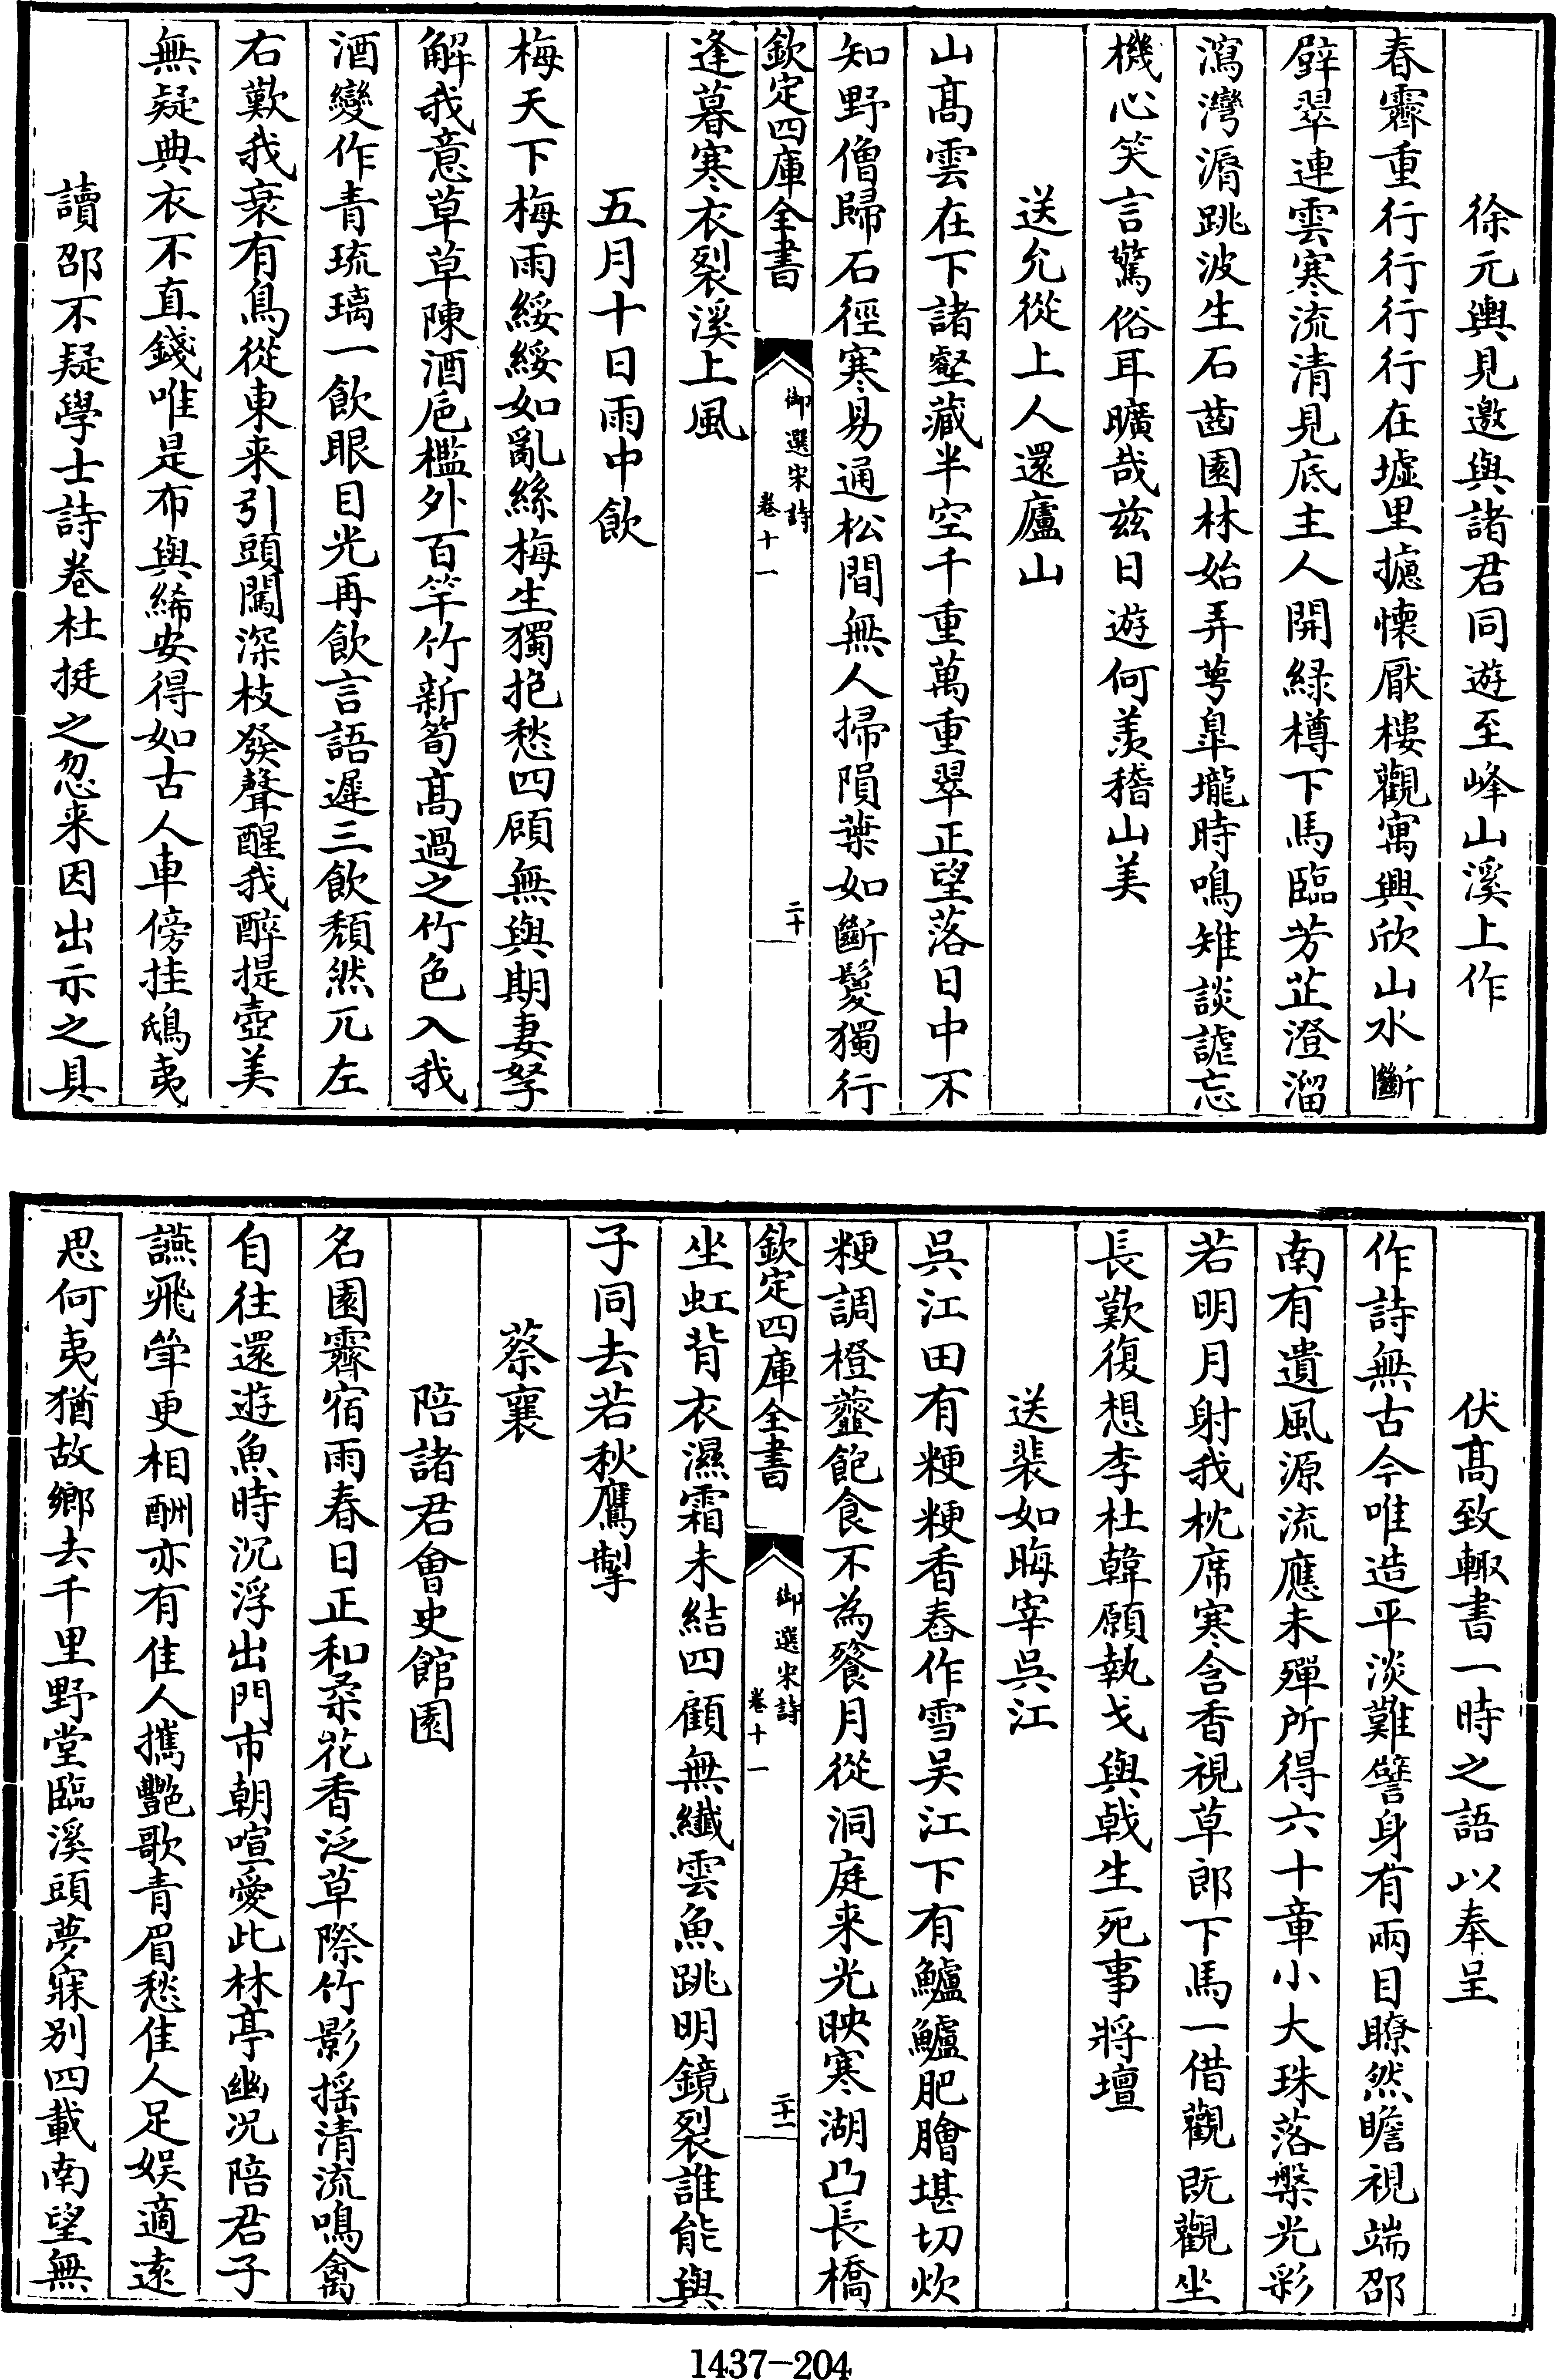 徐元輿見邀與諸君同遊至峰山溪上作
春霽重行行行行在墟里攄懷厭樓觀寓興欣山水斷
辟翠連雲寒流清見底主人開緑樽下馬臨芳芷澄溜
瀉灣漘跳波生石齒園林始弄萼臯壠時鳴雉談謔忘
機心笑言驚俗耳曠哉兹日遊何羨稽山美
送允從上人還廬山
山髙雲在下諸壑藏半空千重萬重翠正望落日中不
知野僧歸石徑寒易通松間無人掃隕葉如斷鬉獨行
欽定四庫全書
御選宋詩
卷十一
二十
逢暮寒衣裂溪上風
五月十日雨中飲
梅天下梅雨綏綏如亂絲梅生獨抱愁四顧無與期妻孥
解我意草草陳酒巵檻外百竿竹新筍髙過之竹色入我
酒變作青琉璃一飲眼目光再飲言語遲三飲頽然兀左
右歎我衰有鳥從東来引頭闖深枝發聲醒我醉提壺美
無疑典衣不直錢唯是布與絺安得如古人車傍挂鴟夷
讀邵不疑學士詩卷杜挺之忽来因出示之具
伏髙致輙書一時之語以奉呈
作詩無古今唯造平淡難譬身有兩目瞭然瞻視端邵
南有遺風源流應未殫所得六十章小大珠落槃光彩
若明月射我枕席寒含香視草郎下馬一借觀既觀坐
長歎復想李杜韓願執戈與戟生死事將壇
送裴如晦宰吳江
吳江田有粳粳香舂作雪吴江下有鱸鱸肥膾堪切炊
粳調橙虀飽食不為餮月從洞庭来光映寒湖凸長橋
欽定四庫全書
御選宋詩
卷十一
二十一
坐虹背衣濕霜未結四顧無纎雲魚跳明鏡裂誰能與
子同去若秋鷹掣
蔡襄
陪諸君會史館園
名園霽宿雨春日正和柔花香泛草際竹影摇清流鳴禽
自往還遊魚時沉浮出門市朝喧愛此林亭幽况陪君子
讌飛觴更相酬亦有佳人攜艷歌青眉愁佳人足娱適逺
思何夷猶故鄉去千里野堂臨溪頭夢寐别四載南望無
1437-204